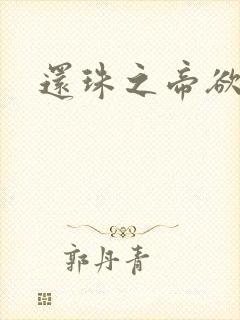 還珠之帝欲
郭丹青